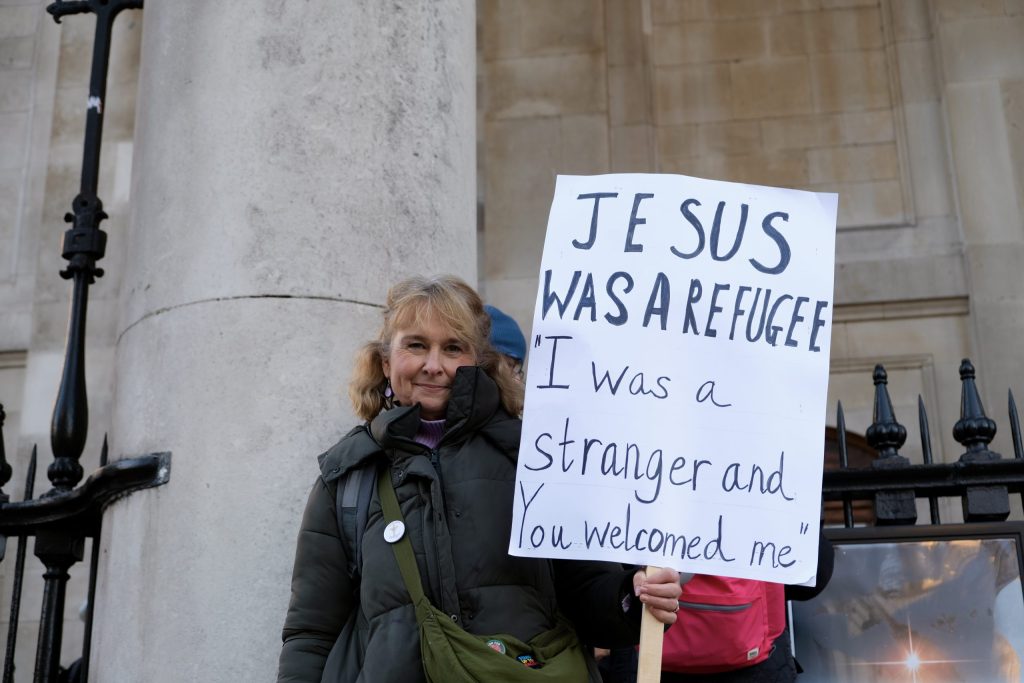 JESUS
WAS A REFUGEE
"I was a
stranger and
You welcomed me"